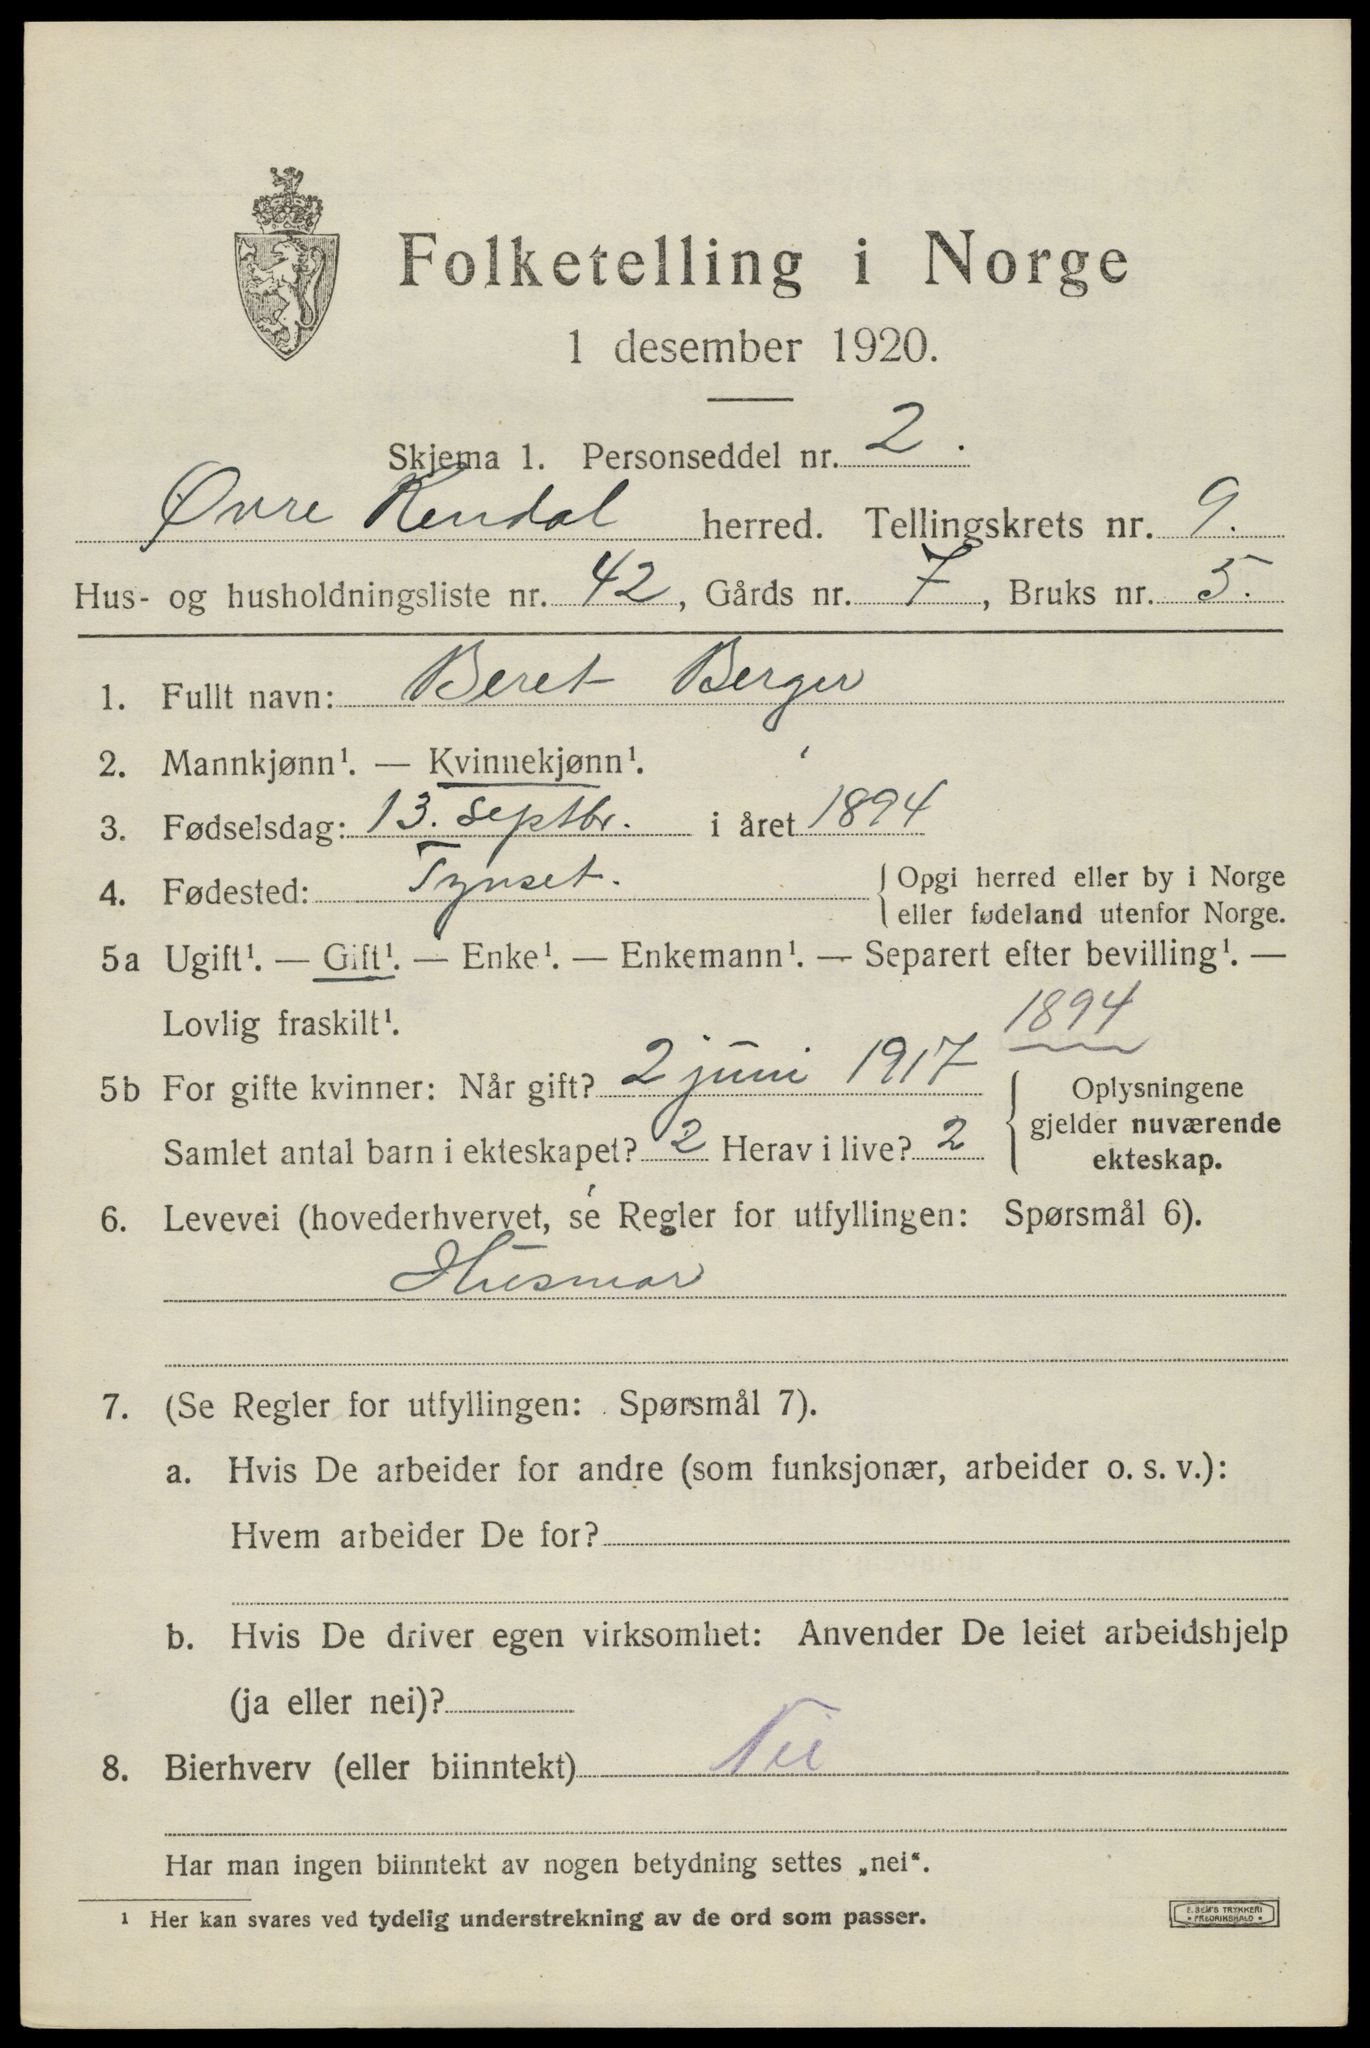 Folketelling i Norge
1 desember 1920.
Skjema 1. Personseddel nr. 2.
Øvre Rendal herred. Tellingskrets nr. 9.
Hus- og husholdningsliste nr. 42, Gårds nr. 7, Bruks nr. 5.
1. Fullt navn: Beret Berger
2. Mannkjønn¹. — Kvinnekjønn¹.
3. Fødselsdag: 13. septbr. i året 1894
4. Fødested: Tynset. { Opgi herred eller by i Norge
eller fødeland utenfor Norge.
5a Ugift¹. — Gift¹. — Enke¹. — Enkemann¹. — Separert efter bevilling¹. —
Lovlig fraskilt¹.
1894
5b For gifte kvinner: Når gift? 2 juni 1917 { Oplysningene
gjelder nuværende
Samlet antal barn i ekteskapet? 2 Herav i live? 2
ekteskap.
6. Levevei (hovederhvervet, se Regler for utfyllingen: Spørsmål 6).
Husmor
7. (Se Regler for utfyllingen: Spørsmål 7).
a. Hvis De arbeider for andre (som funksjonær, arbeider o. s. v.):
Hvem arbeider De for?
b. Hvis De driver egen virksomhet: Anvender De leiet arbeidshjelp
(ja eller nei)?
8. Bierhverv (eller biinntekt) Nei
Har man ingen biinntekt av nogen betydning settes „nei“.
¹ Her kan svares ved tydelig understrekning av de ord som passer.
E. SEM'S TRYKKERI
• FREDRIKSHALD •